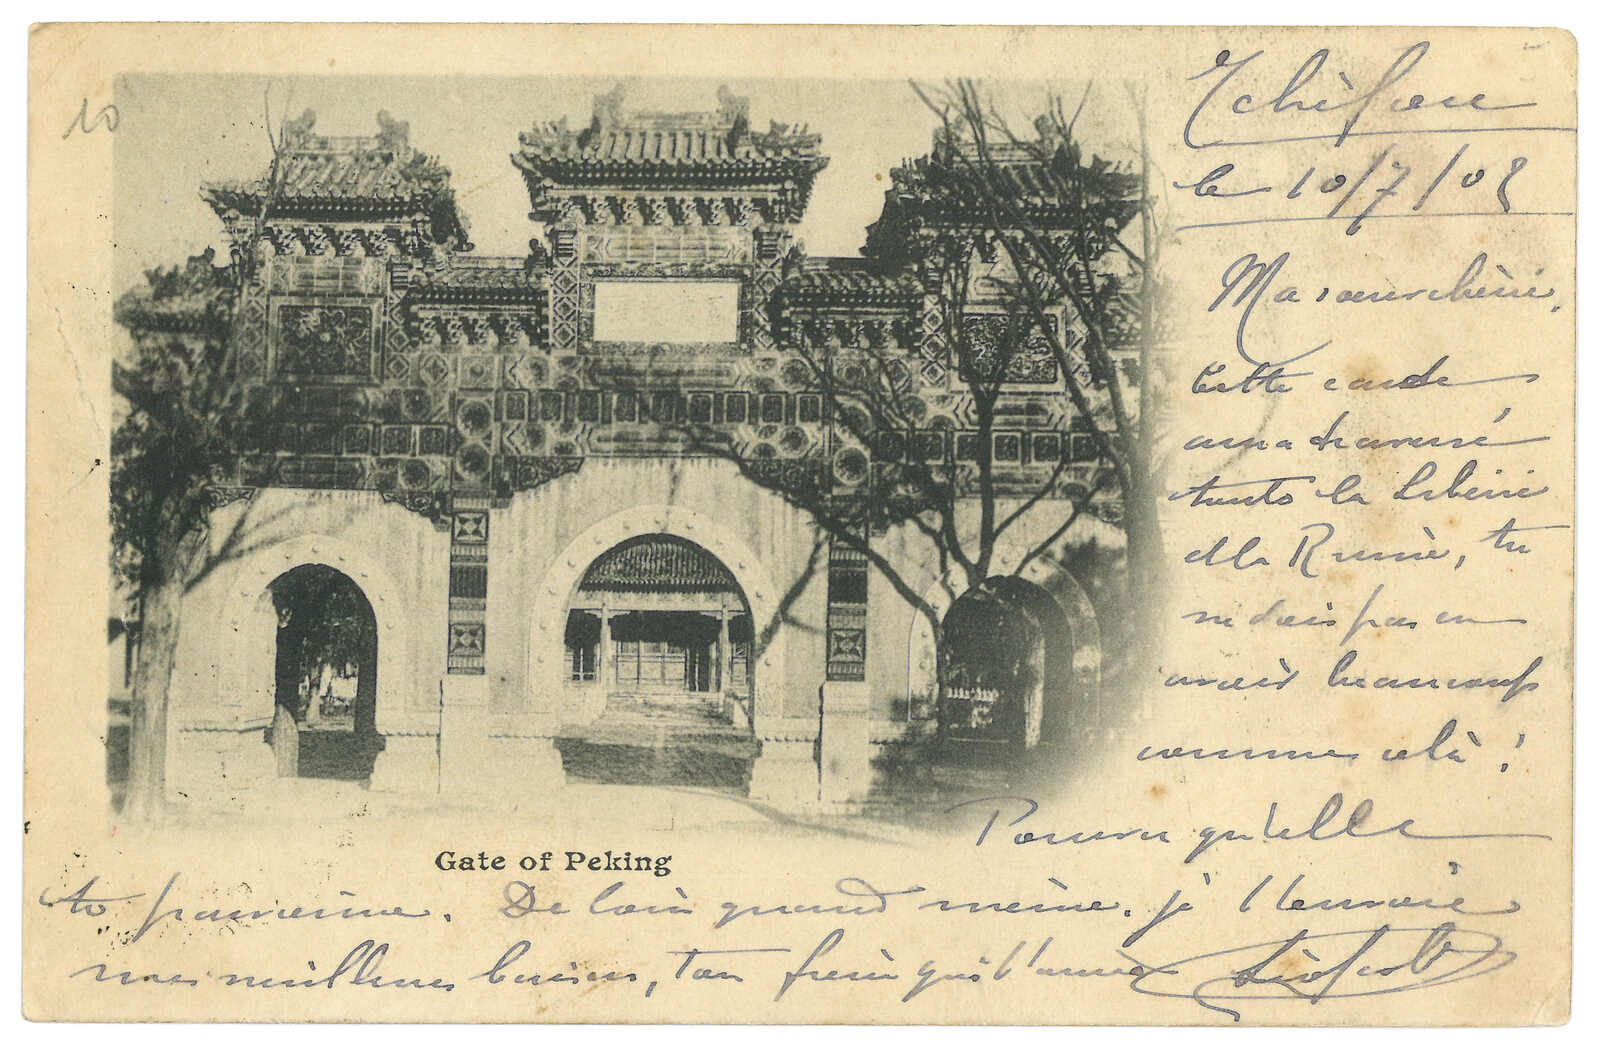 10
Tchéfou
le 10/7/08
Ma sœur chérie,
Cette carte
aura traversé
toute la Sibérie
et la Russie, tu
ne dois pas en
avoir beaucoup
comme cela !
Pourvu qu'elle
te parvienne. De loin quand même, je t'envoie
mes meilleurs baisers, ton frère qui t'aime
Gate of Peking